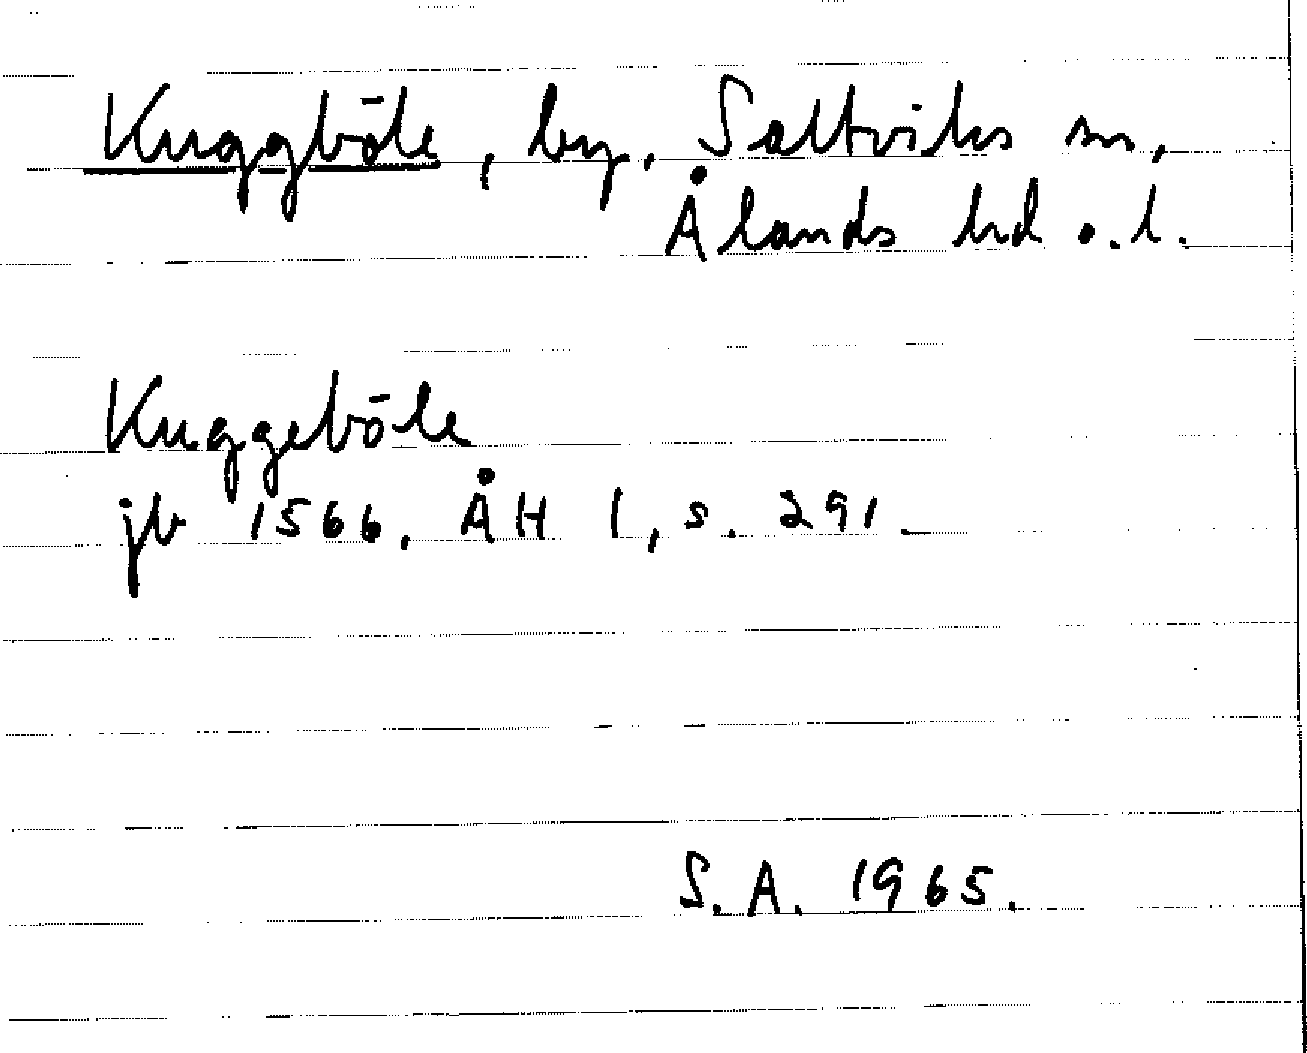 Kuggböle, by, Saltviks sn,
Ålands hd o. l.
Kuggeböle
jb 1566, ÅH 1, s. 291.
S.A. 1965.